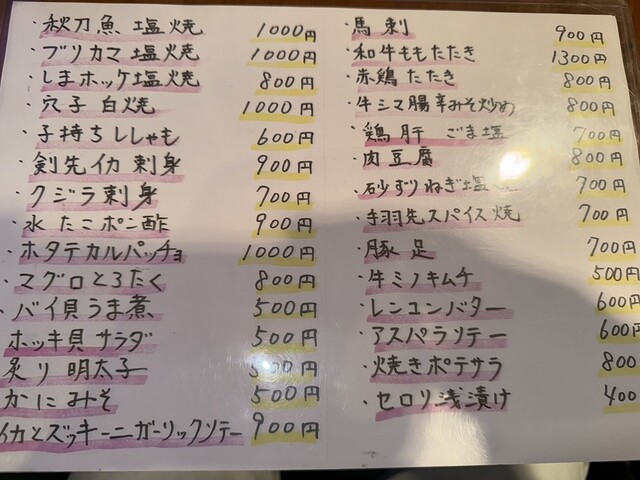 ・秋刀魚 塩焼 1000円
・ブリカマ塩焼 1000円
・しまホッケ塩焼 800円
・穴子 白焼 1000円
・子持ちししゃも 600円
・剣先イカ 刺身 900円
・クジラ刺身 700円
・水たこポン酢 900円
・ホタテカルパッチョ 1000円
・マグロとろたく 800円
・バイ貝うま煮 500円
ホッキ貝サラダ 500円
炙り 明太子 500円
かにみそ 500円
イカとズッキーニガーリックソテー 900円
・馬刺 900円
・和牛ももたたき 1300円
・赤鶏たたき 800円
・牛シマ腸辛みそ炒め 800円
・鶏肝 ごま塩 700円
・肉豆腐 800円
・砂ずりねぎ塩 700円
・手羽先スパイス焼 700円
・豚足 700円
・牛ミノキムチ 500円
・レンコンバター 600円
・アスパラソテー 600円
・焼きポテサラ 800
・セロリ浅漬け 400